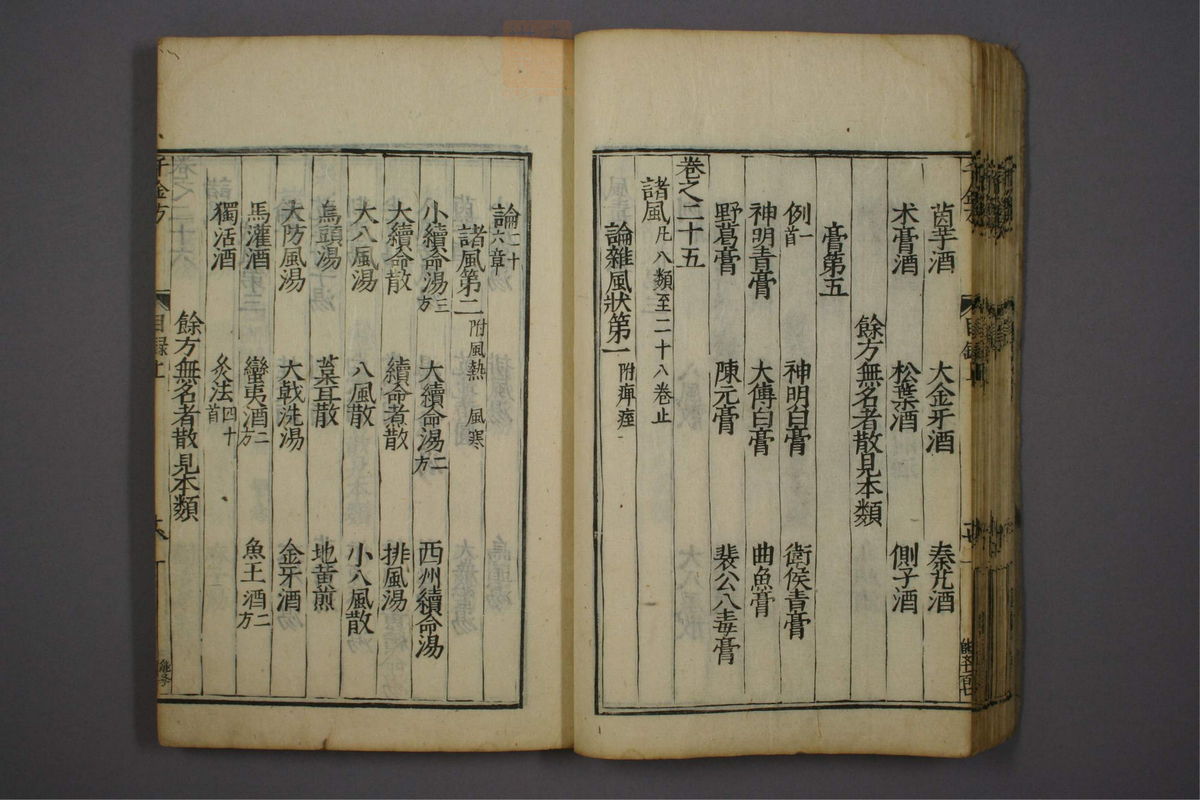 茵芋酒 大金牙酒 秦艽酒
术膏酒 松葉酒 側子酒
餘方無名者散見本類
膏第五
例一首 神明白膏 衛侯青膏
神明青膏 太傅白膏 曲魚膏
野葛膏 陳元膏 裴公八毒膏
卷之二十五
諸風凡八類至二十八卷止
論雜風狀第一附痺痓
論二十六章
諸風第二附風熱 風寒
小續命湯三方 大續命湯二方 西州續命湯
大續命散 續命煮散 排風湯
大八風湯 八風散 小八風散
烏頭湯 菒耳散 地黃煎
大防風湯 大戟洗湯 金牙酒
馬灌酒 蠻夷酒二方 魚王酒二方
獨活酒 灸法四十首
餘方無名者散見本類
千金方 目錄上